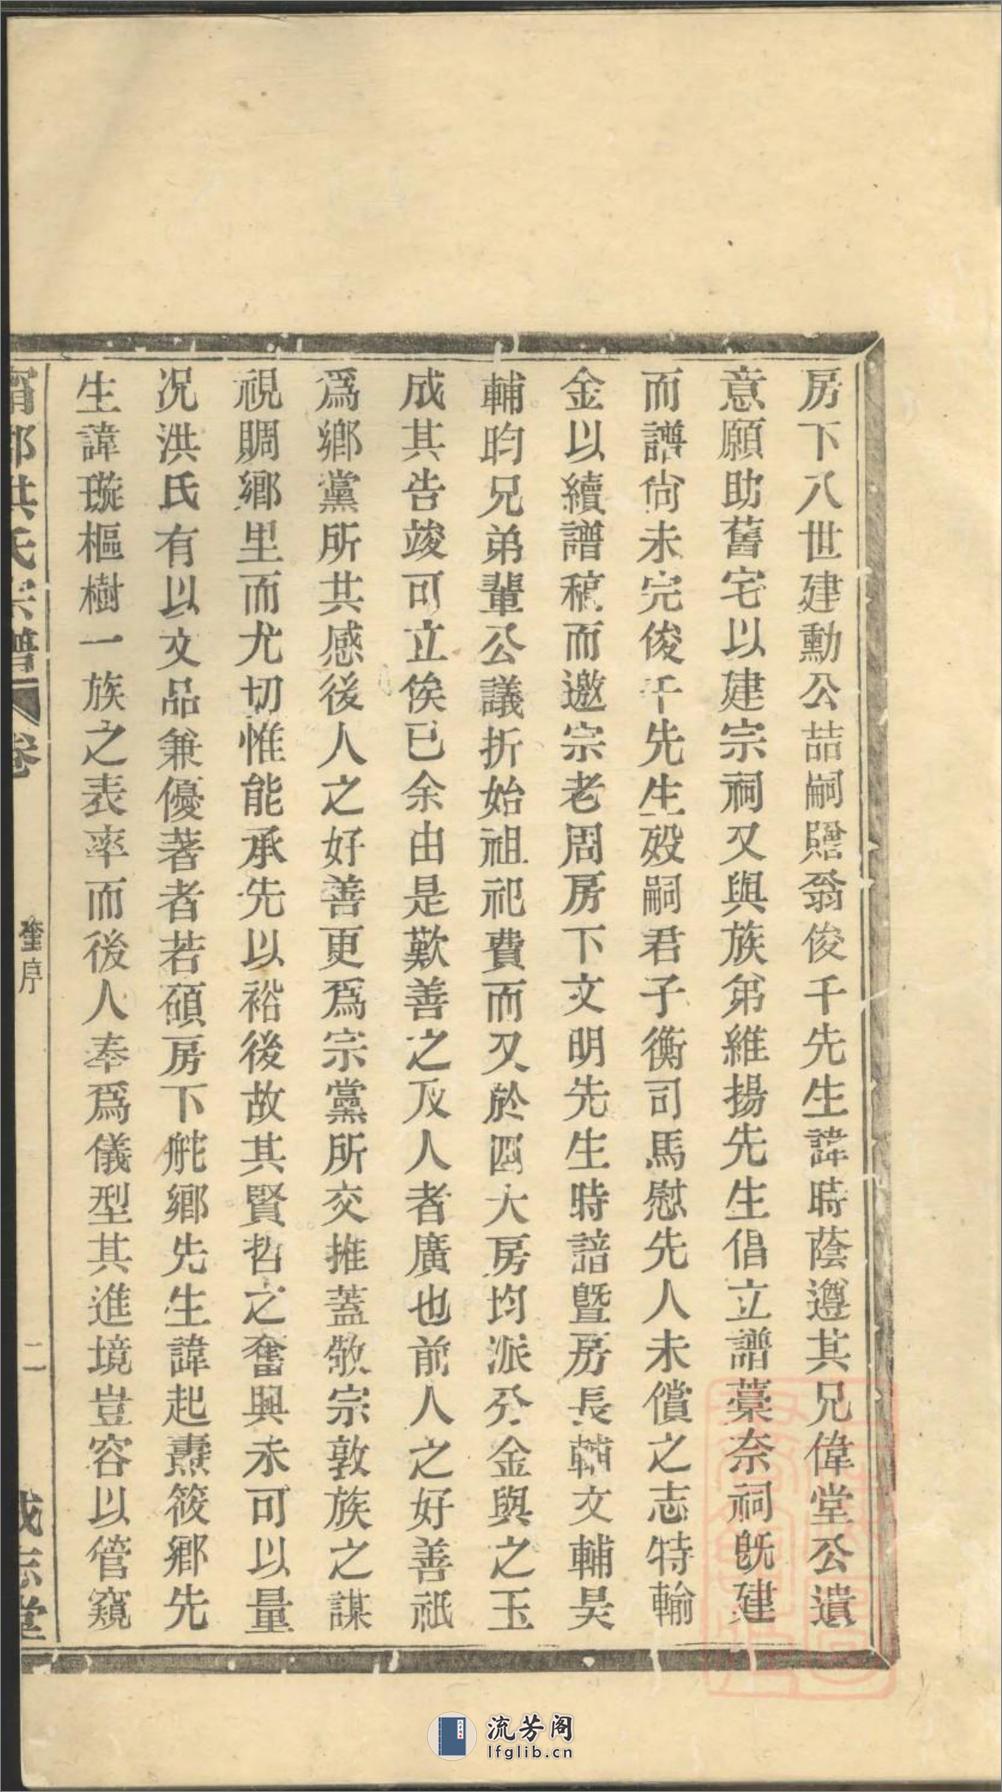 房下八世建勳公喆嗣贈翁俊千先生諱時蔭遵其兄偉堂公遺
意願助舊宅以建宗祠又與族弟維揚先生倡立譜藁奈祠旣建
而譜尙未完俊千先生歿嗣君子衡司馬慰先人未償之志特輸
金以續譜稿而邀宗老周房下文明先生時諳曁房長輔文輔昊
輔昀兄弟輩公議折始祖祀費而又於四大房均派分金與之玉
成其告竣可立俟已余由是歎善之及人者廣也前人之好善祇
爲鄉黨所共感後人之好善更爲宗黨所交推蓋敬宗敦族之謀
視賙鄉里而尤切惟能承先以裕後故其賢哲之奮興未可以量
况洪氏有以文品兼優著者若碩房下舵鄉先生諱起燾筱鄉先
生諱璇樞樹一族之表率而後人奉爲儀型其進境豈容以管窺
甯鄉洪氏宗譜 卷 序 二 成志堂
流芳阁
lfglib.cn